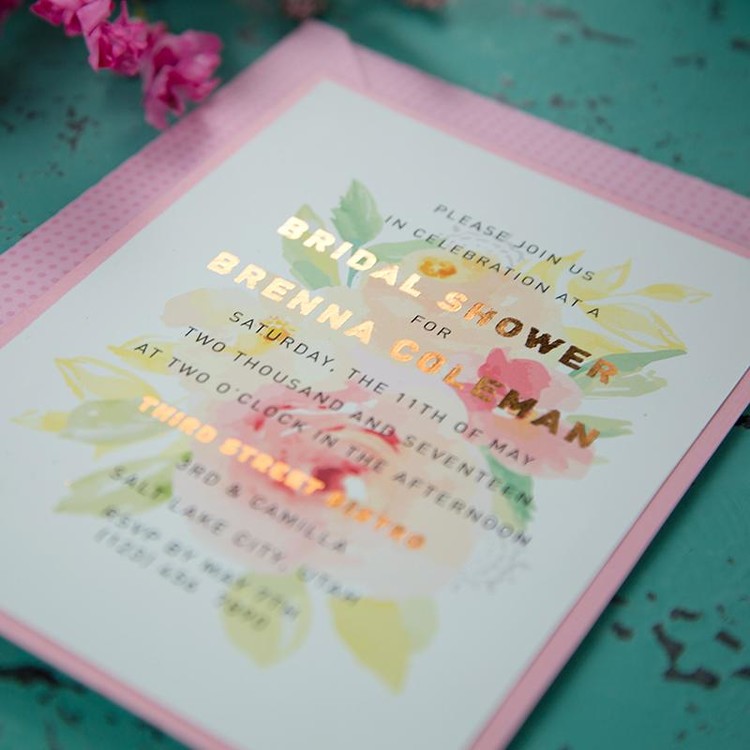 PLEASE JOIN US
IN CELEBRATION AT A
BRIDAL SHOWER
FOR
BRENNA COLEMAN
SATURDAY, THE 11TH OF MAY
TWO THOUSAND AND SEVENTEEN
AT TWO O'CLOCK IN THE AFTERNOON
THIRD STREET BISTRO
3RD & CAMILLA
SALT LAKE CITY, UTAH
RSVP BY MAY 7TH